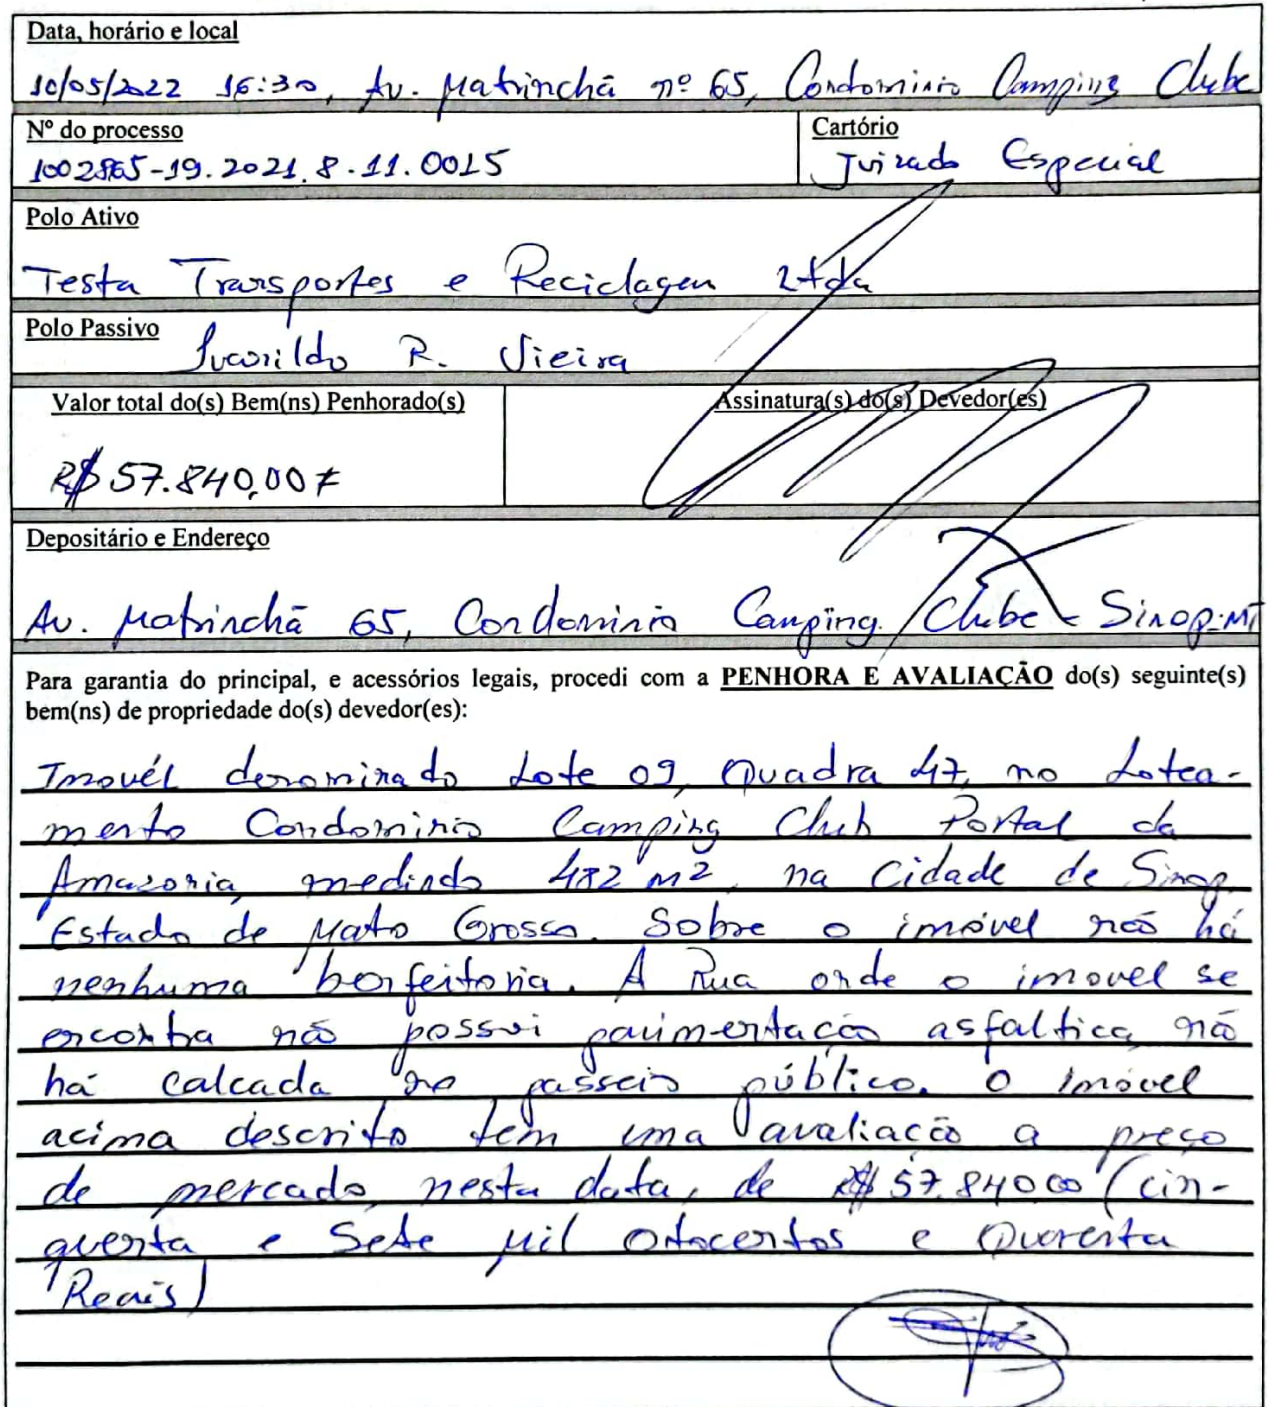 Data, horário e local
10/05/2022 16:30, Av. Matrinchã nº 65, Condominio Camping Clube
Nº do processo
Cartório
1002865-19.2021.8.11.0015
Juizado Especial
Polo Ativo
Testa Transportes e Reciclagem Ltda
Polo Passivo
R. Vieira
Valor total do(s) Bem(ns) Penhorado(s)
Assinatura(s) do(s) Devedor(es)
R$ 57.840,00
Depositário e Endereço
Av. Matrinchã 65, Condominio Camping Clube - Sinop-MT
Para garantia do principal, e acessórios legais, procedi com a PENHORA E AVALIAÇÃO do(s) seguinte(s)
bem(ns) de propriedade do(s) devedor(es):
Imovél denominado Lote 09, Quadra 47, no Lotea-
mento Condominio Camping Club Portal da
Amazonia, medindo 482 m², na Cidade de Sinop,
Estado de Mato Grosso. Sobre o imóvel não há
nenhuma benfeitoria. A Rua onde o imovel se
encontra não possui pavimentação asfaltica, não
há calcada no passeio público. O imóvel
acima descrito tem uma avaliação a preço
de mercado, nesta data, de R$ 57.84000 (cin-
quenta e Sete Mil Oitocentos e Quarenta
Reais)